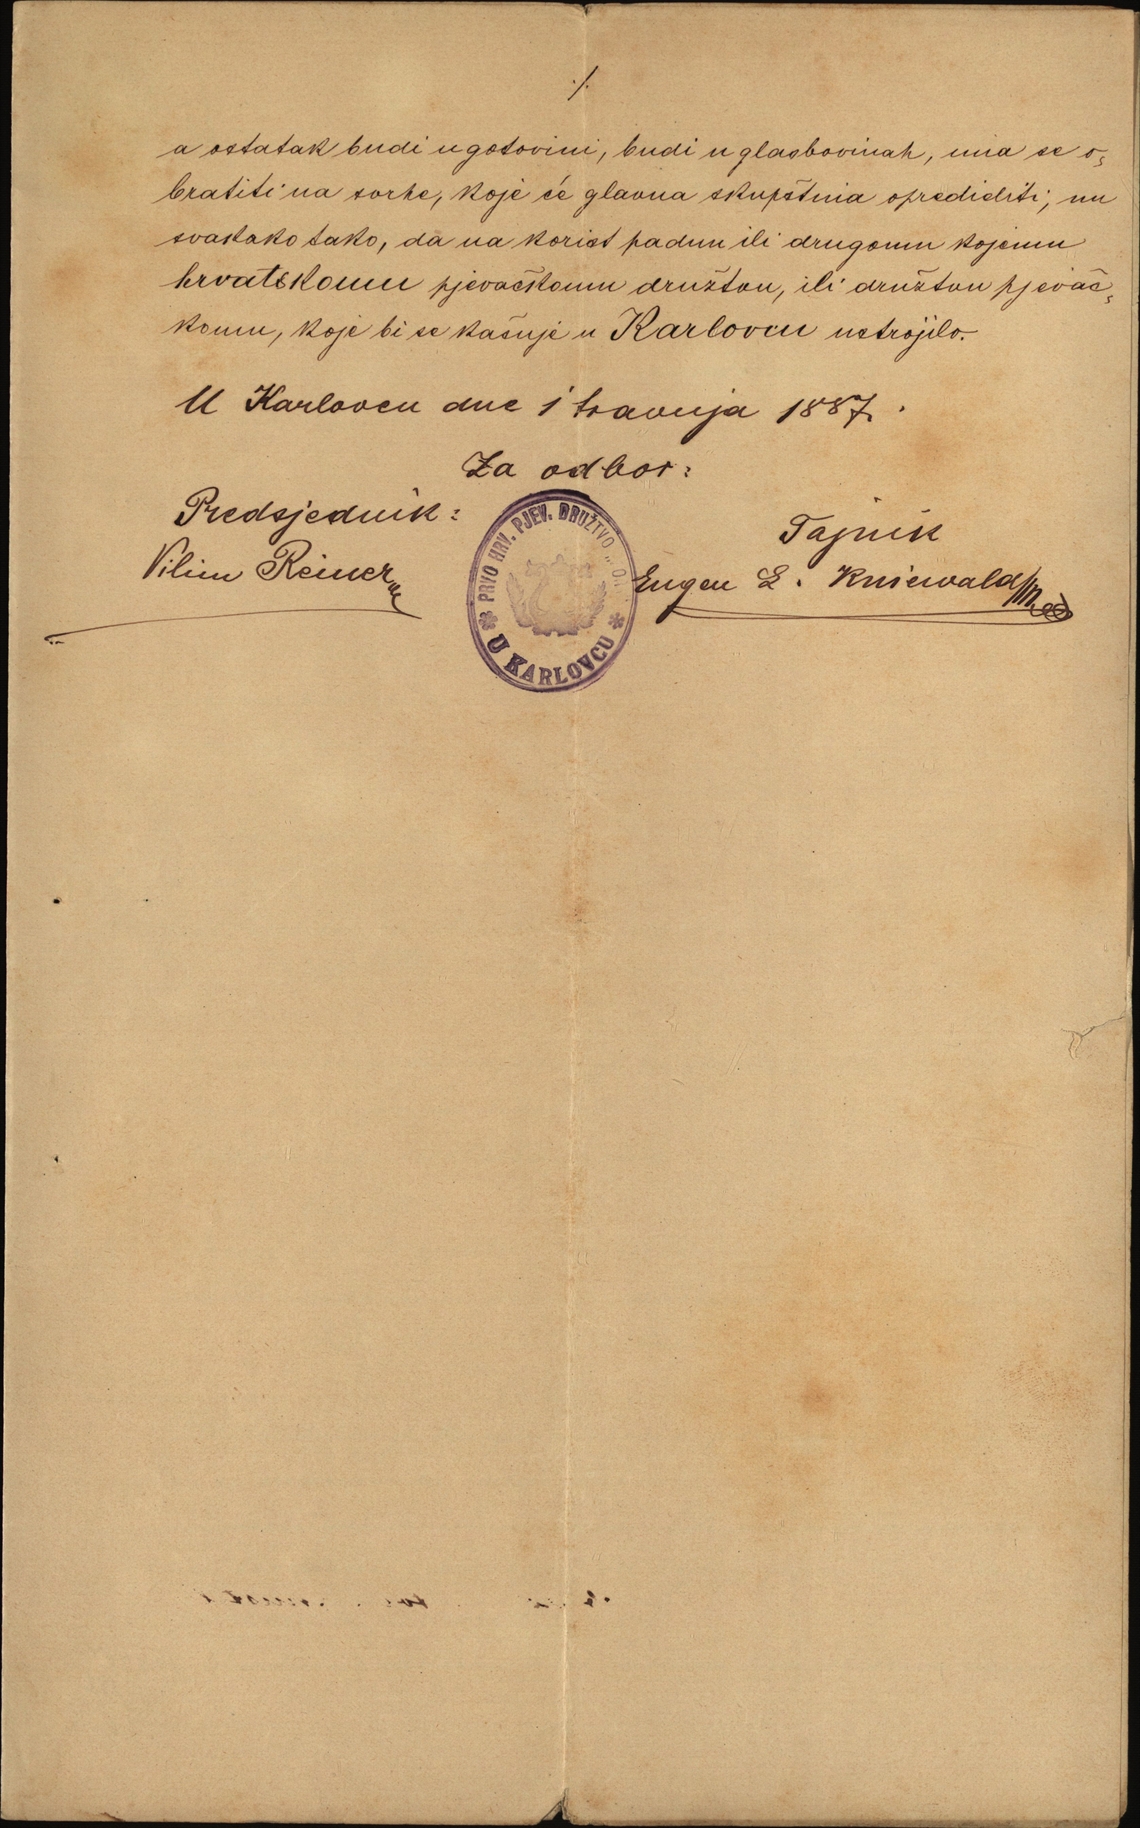 ./.
a ostatak budi u gotovini, budi u glasbovinah, ima se o-
bratiti na svrhe, koje će glavna skupština opredieliti, nu
svakako tako, da na korist padnu ili drugomu kojemu
hrvatskomu pjevačkomu družtvu, ili družtvu pjevač-
komu, koje bi se kašnje u Karlovcu ustrojilo.
U Karlovcu dne 1 travnja 1887.
Za odbor:
Predsjednik:
Vilim Reiner
Tajnik
Eugen L. Kniewald
PRVO HRV. PJEV. DRUŽTVO
U KARLOVCU